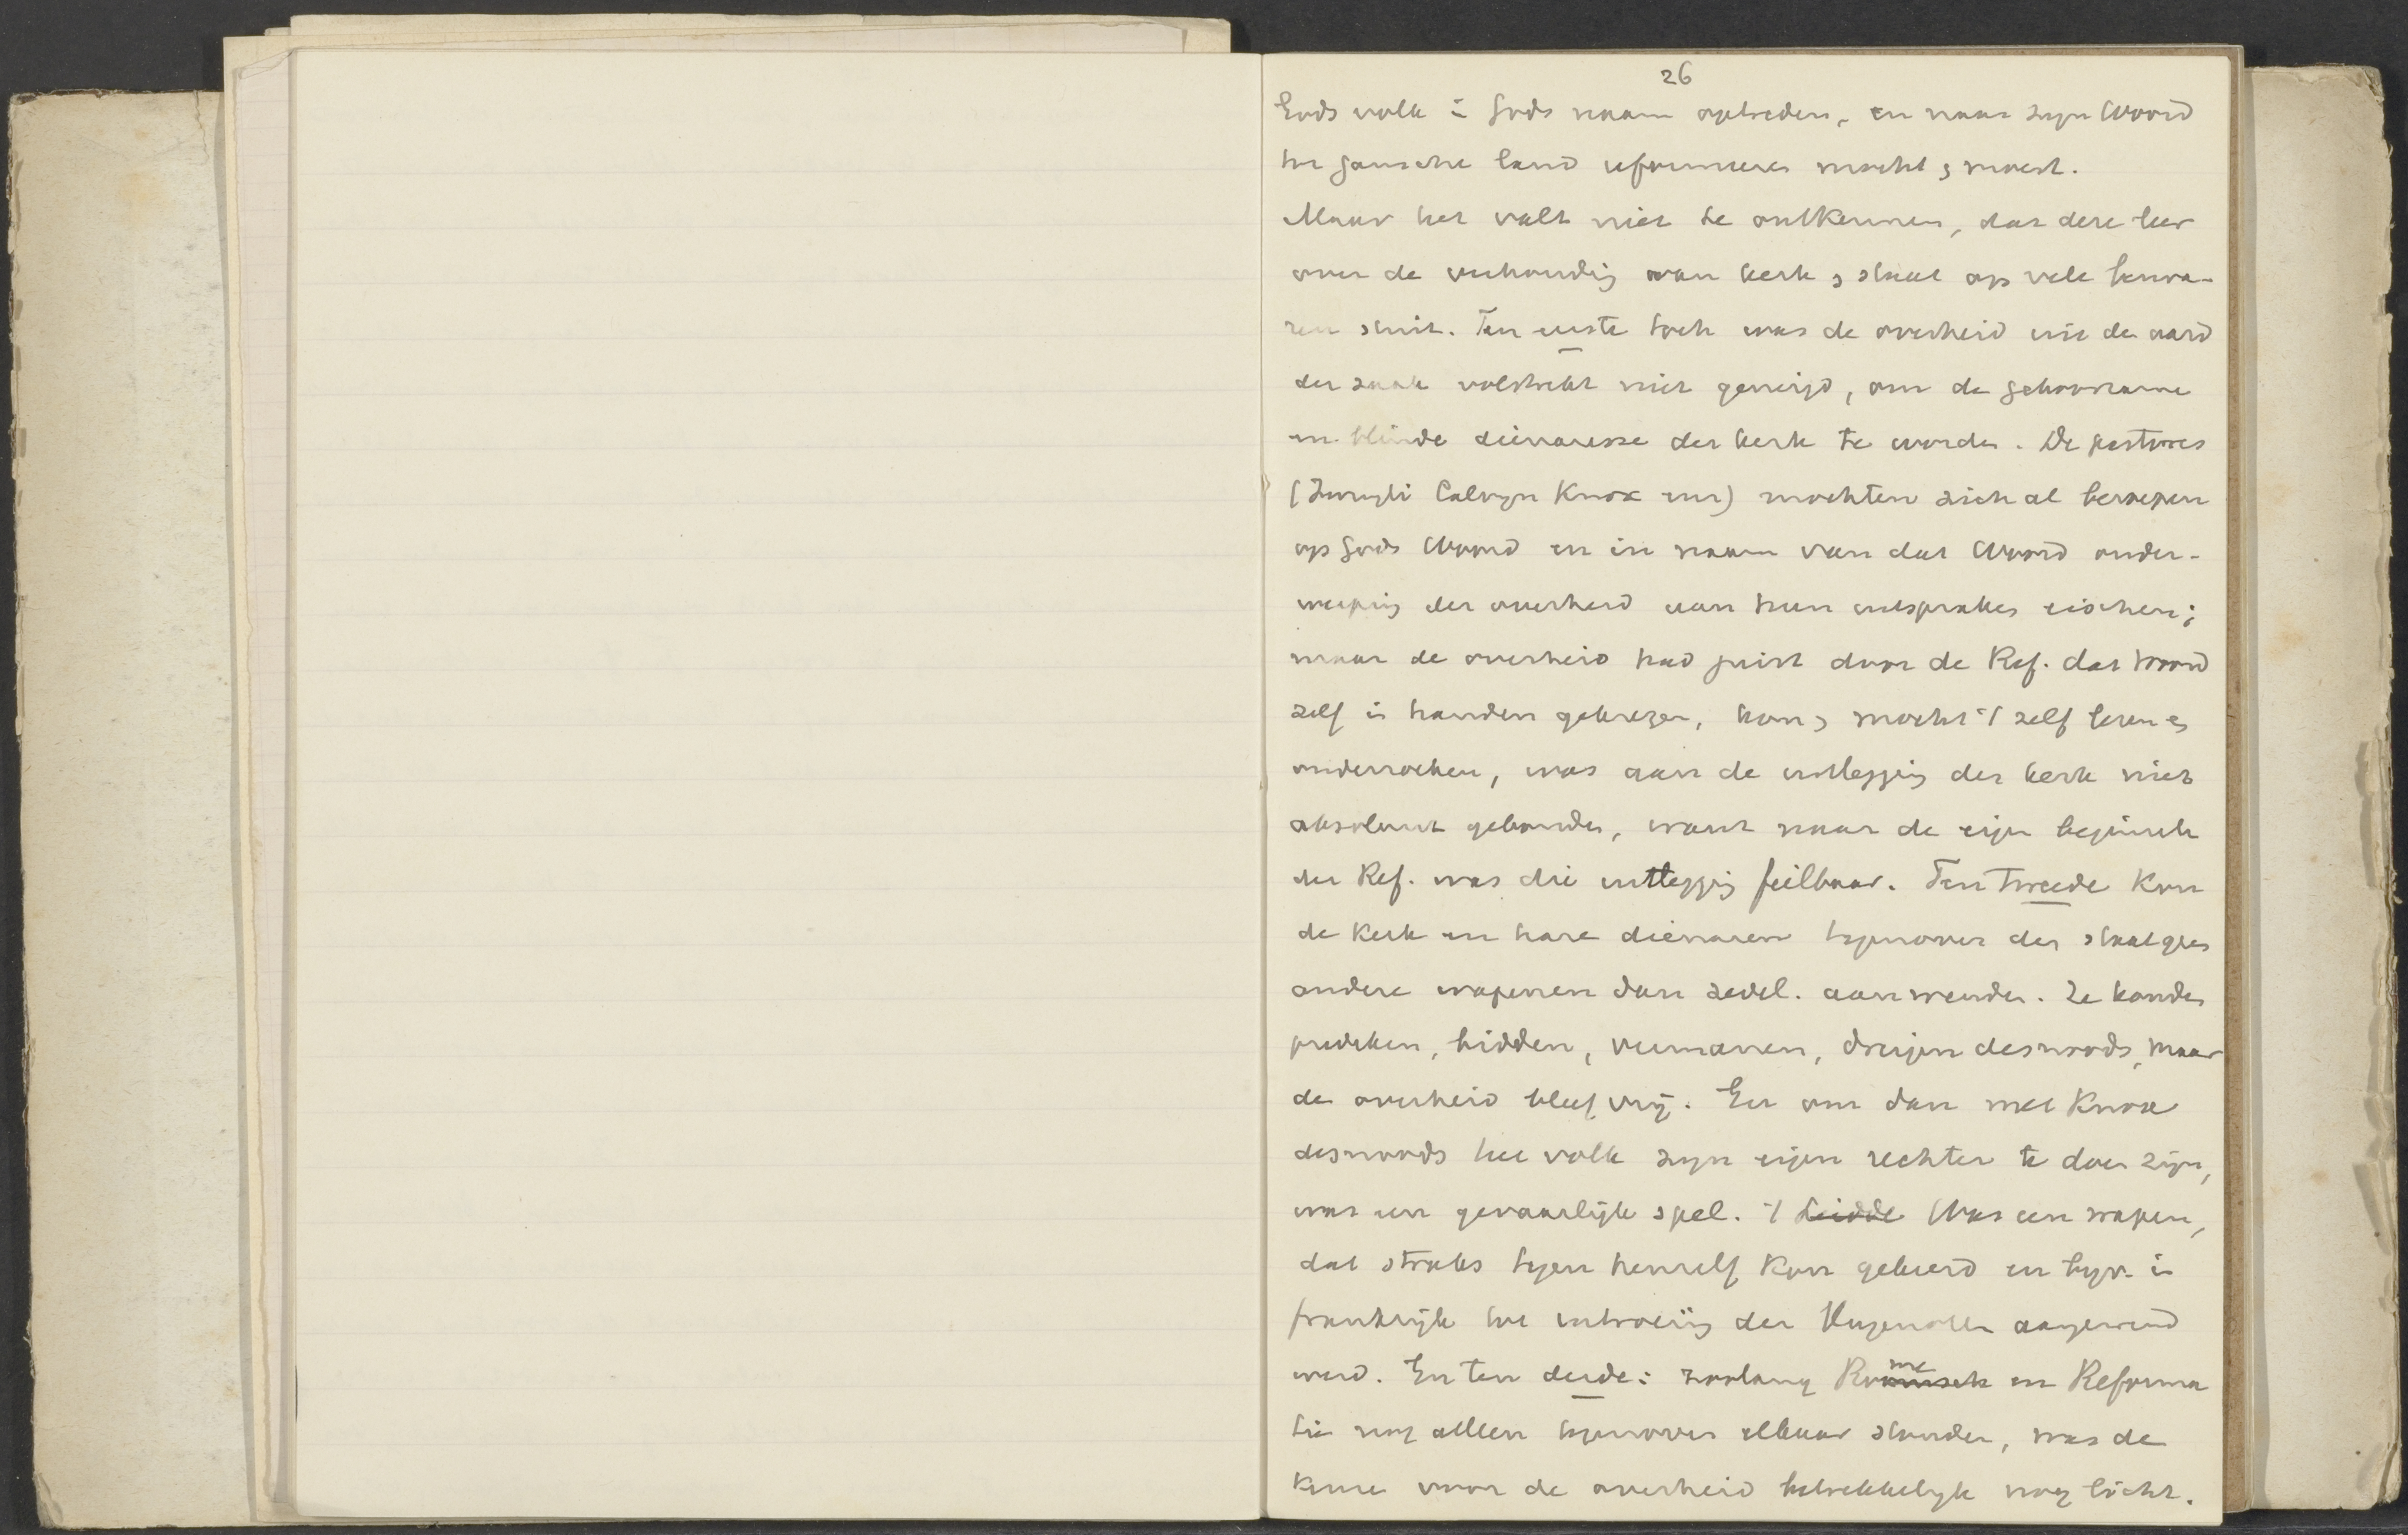 26
Gods volk in Gods naam optreden, en naar zijn Woord
het gansche land reformeeren mocht en moest.
Maar het valt niet te ontkennen, dat deze leer
over de verhouding van kerk en staat op vele bezwa-
ren stuit. Ten eerste toch was de overheid uit de aard
der zaak volstrekt niet geneigd, om de gehoorzame
en blinde dienaresse der kerk te worden. De pastores
(Zwingli Calvyn Knox enz) mochten zich al beroepen
op Gods Woord en in naam van dat Woord onder-
werping der overheid aan hun uitspraken eischen;
maar de overheid had juist door de Ref. dat woord
zelf in handen gekregen, kon en mocht 't zelf lezen en
onderzoeken, was aan de uitlegging der kerk niet
absoluut gebonden, want naar de eigen beginsele
der Ref. was die uitlegging feilbaar. Ten tweede kon
de Kerk en hare dienaren tegenover den staat geen
andere wapenen dan zedel. aanwenden. Ze konden
prediken, bidden, vermanen, dreigen desnoods, maar
de overheid bleef vrij. En om dan met Knox
desnoods het volk zijn eigen rechter te doen zijn,
was een gevaarlijk spel. 't Leidde Was een wapen,
dat straks tegen henzelf kon gekeerd en bijv. in
Frankrijk tot uitroeiing der Hugenoten aangewend
werd. En ten derde: zoolang Roomsch me en Reforma
tie nog alleen tegenover elkaar stonden, was de
keuze voor de overheid betrekkelijk nog licht.